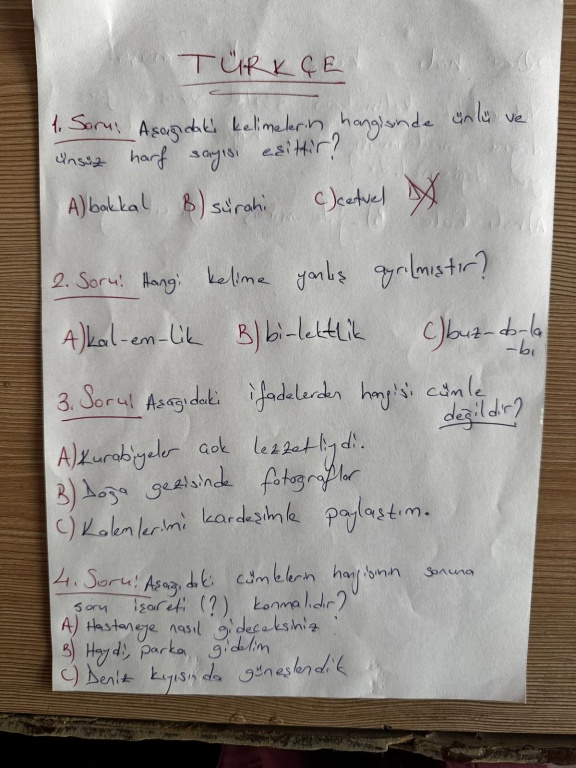 TÜRKÇE
1. Soru: Aşağıdaki kelimelerin hangisinde ünlü ve
ünsüz harf sayısı eşittir?
A) bakkal B) sürahi C) cetvel
2. Soru: Hangi kelime yanlış ayrılmıştır?
A) kal-em-lik B) bi-lektlik C) buz-do-la
-bı
3. Soru: Aşağıdaki ifadelerden hangisi cümle
değildir?
A) Kurabiyeler çok lezzetliydi.
B) Doğa gezisinde fotoğraflar
C) Kalemlerimi kardeşimle paylaştım.
4. Soru: Aşağıdaki cümlelerin hangisinin sonuna
soru işareti (?) konmalıdır?
A) Hastaneye nasıl gideceksiniz
B) Haydi, parka gidelim
C) Deniz kıyısında güneşlendik